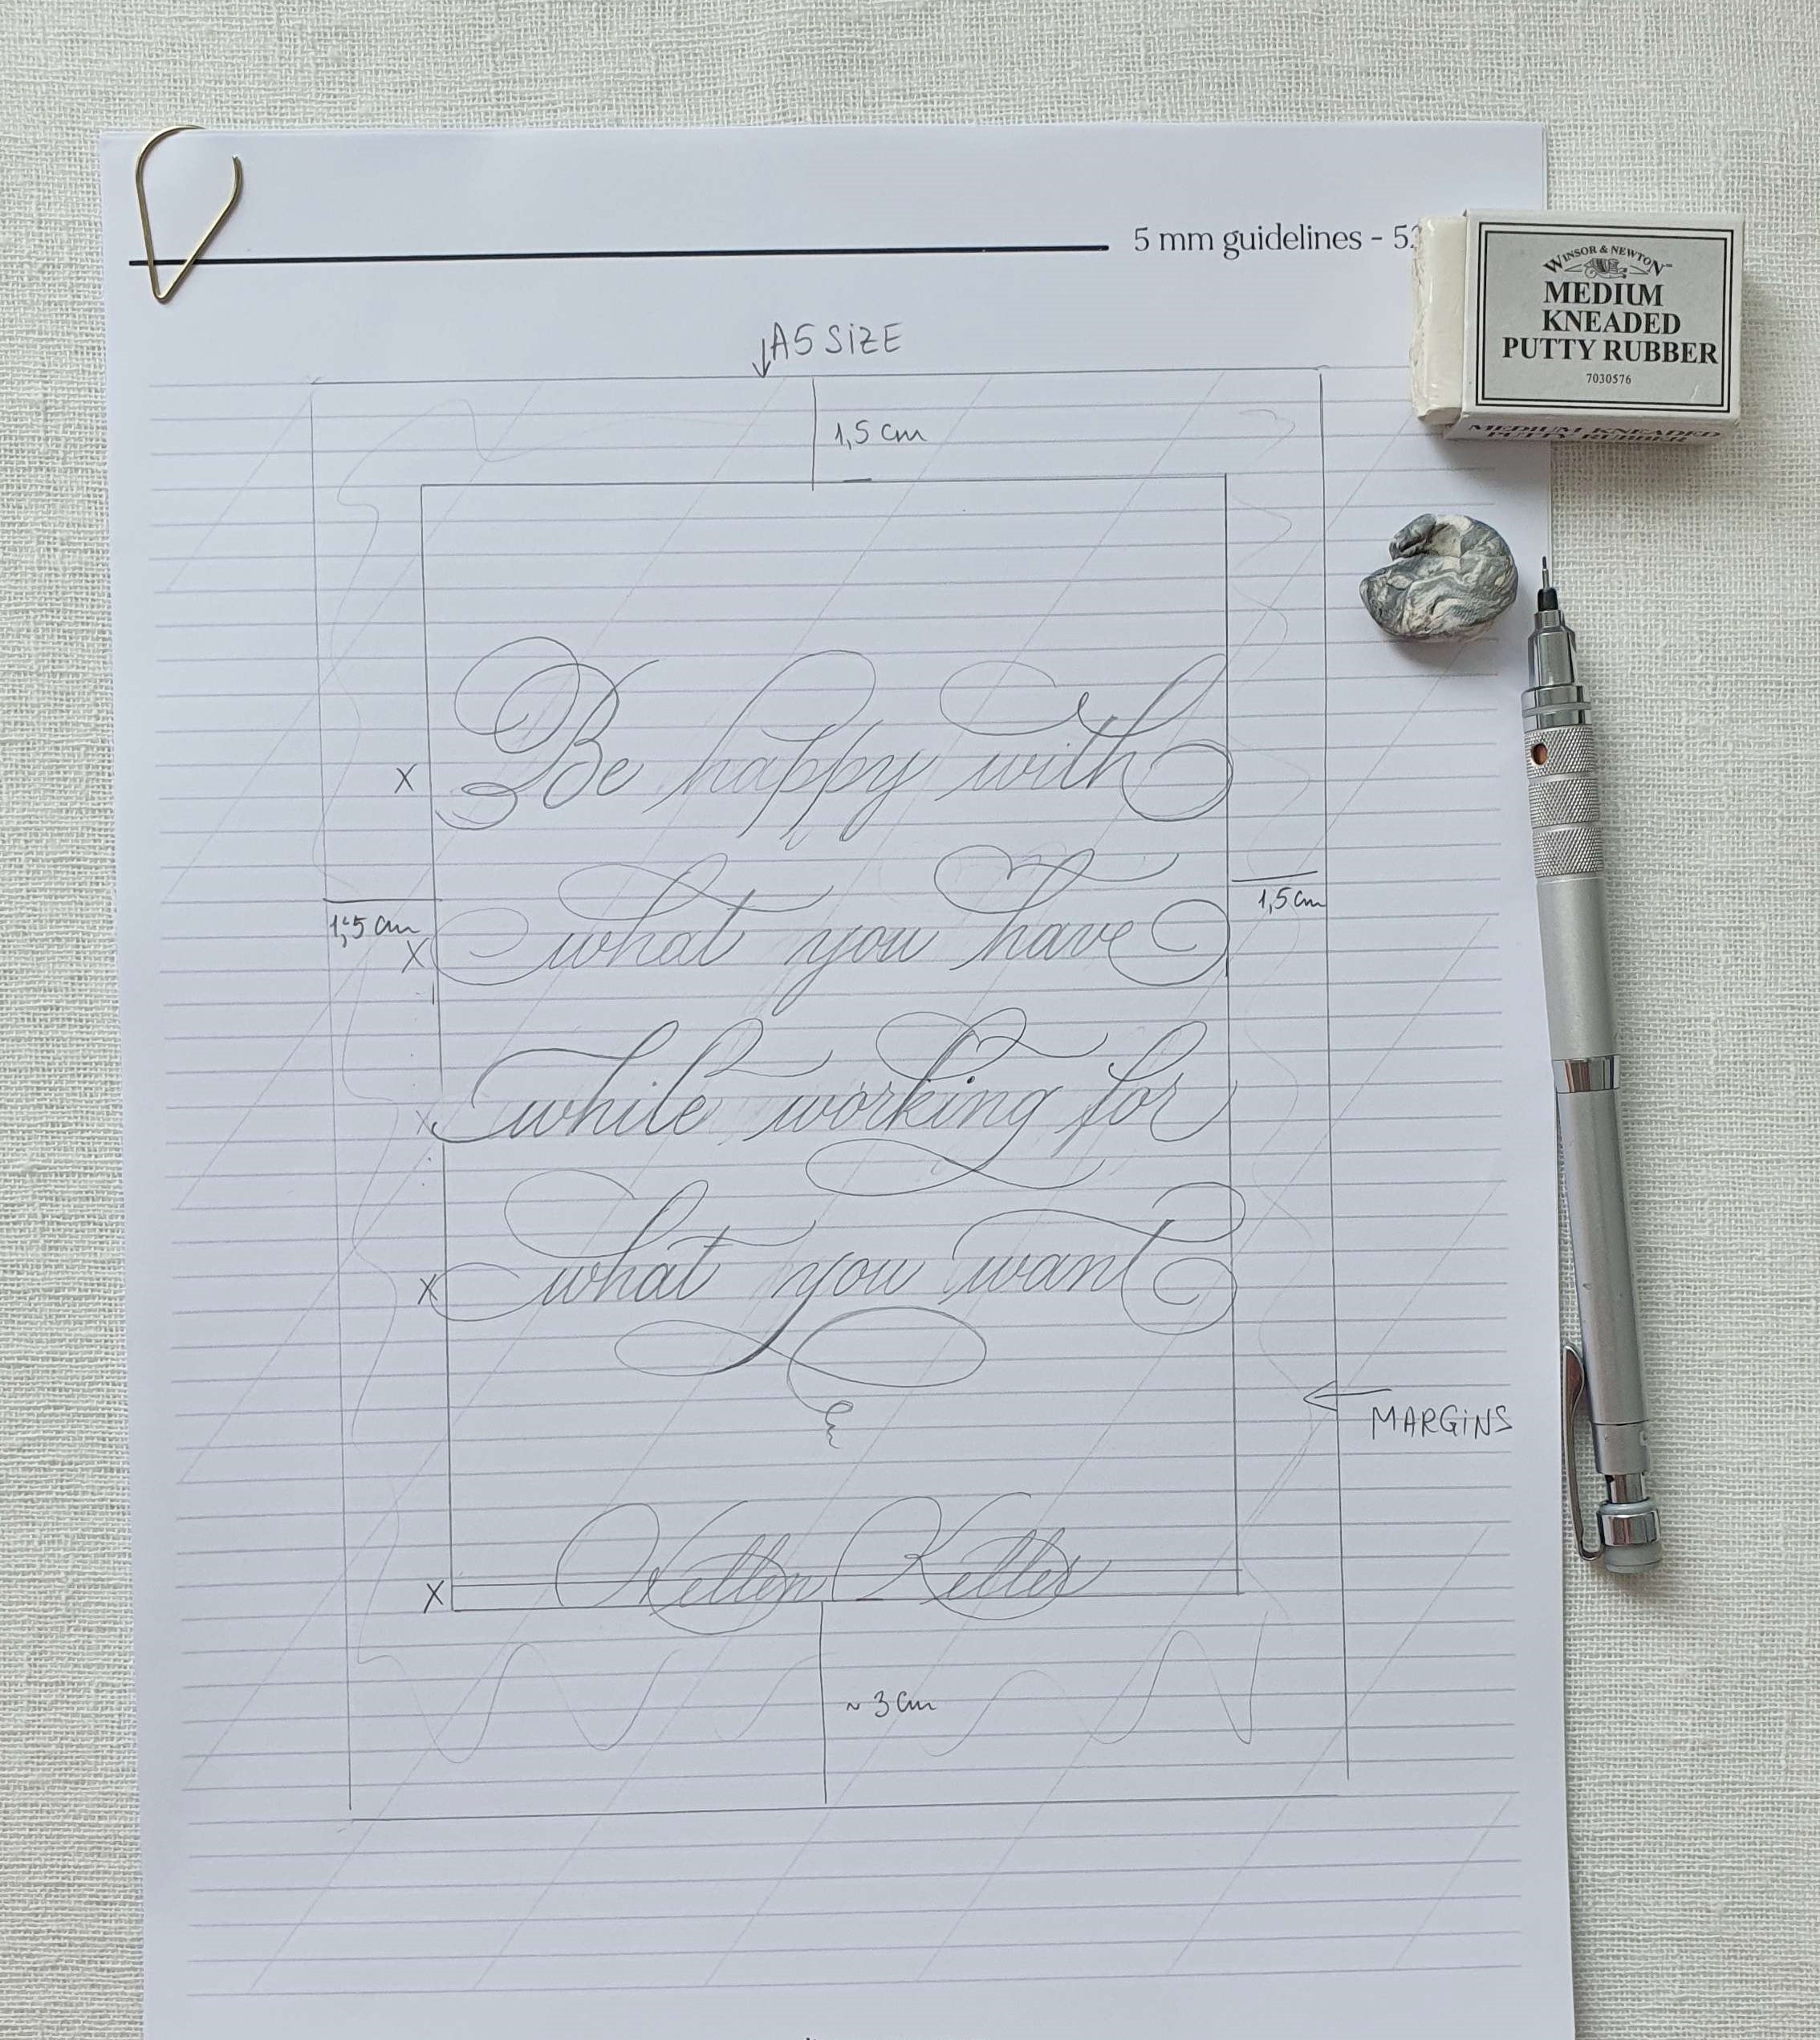 5 mm guidelines - 5
WINSOR & NEWTON™
MEDIUM
KNEADED
PUTTY RUBBER
7030576
MEDIUM KNEADED
PUTTY RUBBER
A5 SIZE
1,5 cm
X Be happy with
1,5 cm
1,5 cm
X what you have
X while working for
X what you want
MARGINS
X Hellen Keller
~ 3 cm